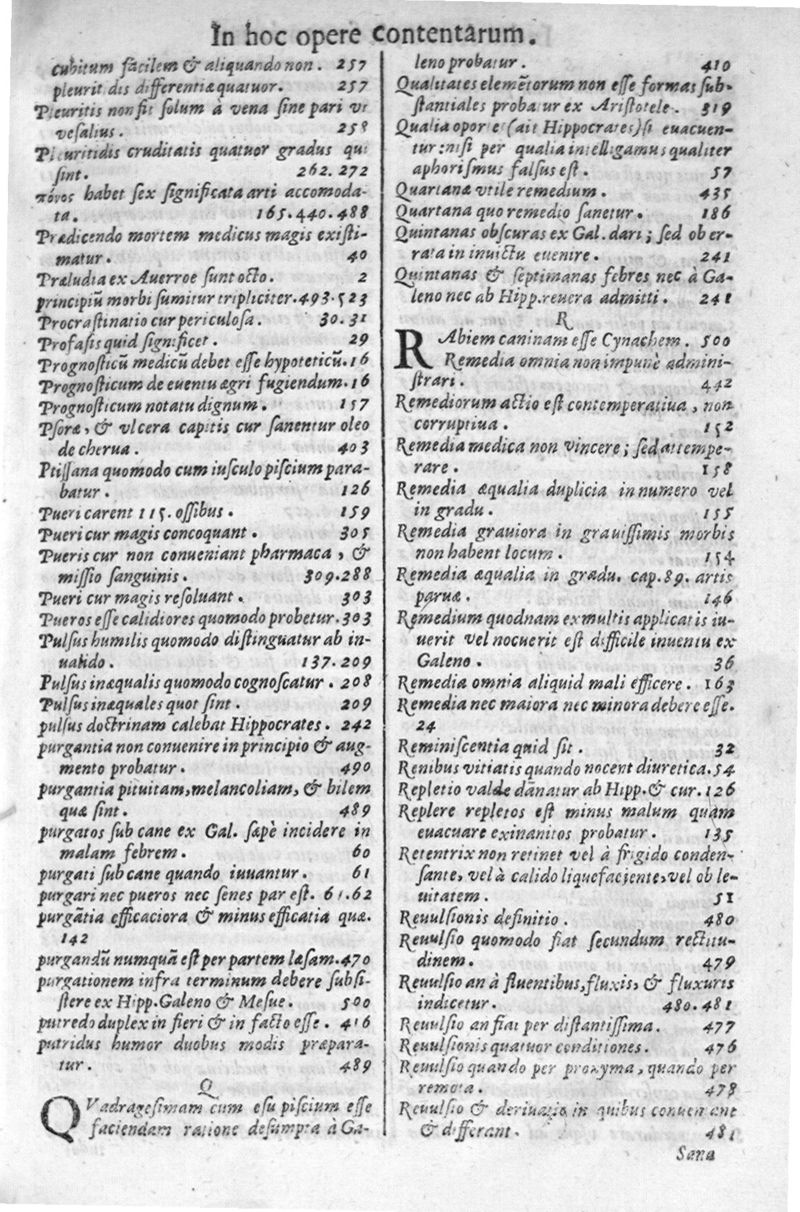 In hoc opere contentarum.
cubitum facilem & aliquando non. 257
pleuritidis differentiæ quatuor. 257
Pleuritis non fit solum à vena sine pari vt
vesalius. 258
Pleuritidis cruditatis quatuor gradus qui
sint. 262.272
πόνος habet sex significata arti accomoda-
ta. 165.440.488
Prædicendo mortem medicus magis existi-
matur. 40
Præludia ex Auerroe sunt octo. 2
principiũ morbi sumitur tripliciter. 493.523
Procrastinatio cur periculosa. 30.31
Profasis quid significet. 29
Prognosticũ medicũ debet esse hypoteticũ. 16
Prognosticum de euentu ægri fugiendum. 16
Prognosticum notatu dignum. 157
Psoræ, & vlcera capitis cur sanentur oleo
de cherua. 403
Ptissana quomodo cum iusculo piscium para-
batur. 126
Pueri carent 115. ossibus. 159
Pueri cur magis concoquant. 305
Pueris cur non conueniant pharmaca, &
missio sanguinis. 309.288
Pueri cur magis resoluant. 303
Pueros esse calidiores quomodo probetur. 303
Pulsus humilis quomodo distinguatur ab in-
ualido. 137.209
Pulsus inæqualis quomodo cognoscatur. 208
Pulsus inæquales quot sint. 209
pulsus doctrinam calebat Hippocrates. 242
purgantia non conuenire in principio & aug-
mento probatur. 490
purgantia pituitam, melancoliam, & bilem
quæ sint. 489
purgatos sub cane ex Gal. sæpè incidere in
malam febrem. 60
purgati sub cane quando iuuantur. 61
purgari nec pueros nec senes par est. 61.62
purgãtia efficaciora & minus efficatia quæ.
142
purgandũ numquã est per partem læsam. 470
purgationem infra terminum debere subsi-
stere ex Hipp. Galeno & Mesue. 500
putredo duplex in fieri & in facto esse. 416
putridus humor duobus modis præpara-
tur. 489
Q
QVadragesimam cum esu piscium esse
faciendam ratione desumpta à Ga-
leno probatur. 410
Qualitates elemẽtorum non esse formas sub-
stantiales probatur ex Aristotele. 319
Qualia oporte (ait Hippocrates) si euacuen-
tur: nisi per qualia intelligamus qualiter
aphorismus falsus est. 57
Quartanæ vtile remedium. 435
Quartana quo remedio sanetur. 186
Quintanas obscuras ex Gal. dari; sed ob er-
rata in inuictu euenire. 241
Quintanas & septimanas febres nec à Ga-
leno nec ab Hipp. reuera admitti. 241
R
RAbiem caninam esse Cynachem. 500
Remedia omnia non impunè admini-
strari. 442
Remediorum actio est contemperatiua, non
corruptiua. 152
Remedia medica non vincere; sed attempe-
rare. 158
Remedia æqualia duplicia in numero vel
in gradu. 155
Remedia grauiora in grauissimis morbis
non habent locum. 154
Remedia æqualia in grædu. cap. 89. artis
paruæ. 146
Remedium quodnam ex multis applicatis iu-
uerit vel nocuerit est difficile inuentu ex
Galeno. 36
Remedia omnia aliquid mali efficere. 163
Remedia nec maiora nec minora debere esse.
24
Reminiscentia quid sit. 32
Renibus vitiatis quando nocent diuretica. 54
Repletio valde dãnatur ab Hipp. & cur. 126
Replere repletos est minus malum quam
euacuare exinanitos probatur. 135
Retentrix non retinet vel à frigido conden-
sante, vel à calido liquefaciente, vel ob le-
uitatem. 51
Reuulsionis definitio. 480
Reuulsio quomodo fiat secundum rectitu-
dinem. 479
Reuulsio an à fluentibus, fluxis, & fluxuris
indicetur. 480.481
Reuulsio an fiat per distantissima. 477
Reuulsionis quatuor conditiones. 476
Reuulsio quando per proxyma, quando per
remota. 478
Reuulsio & deriuatio in quibus conueniant
& differant. 481
Sana